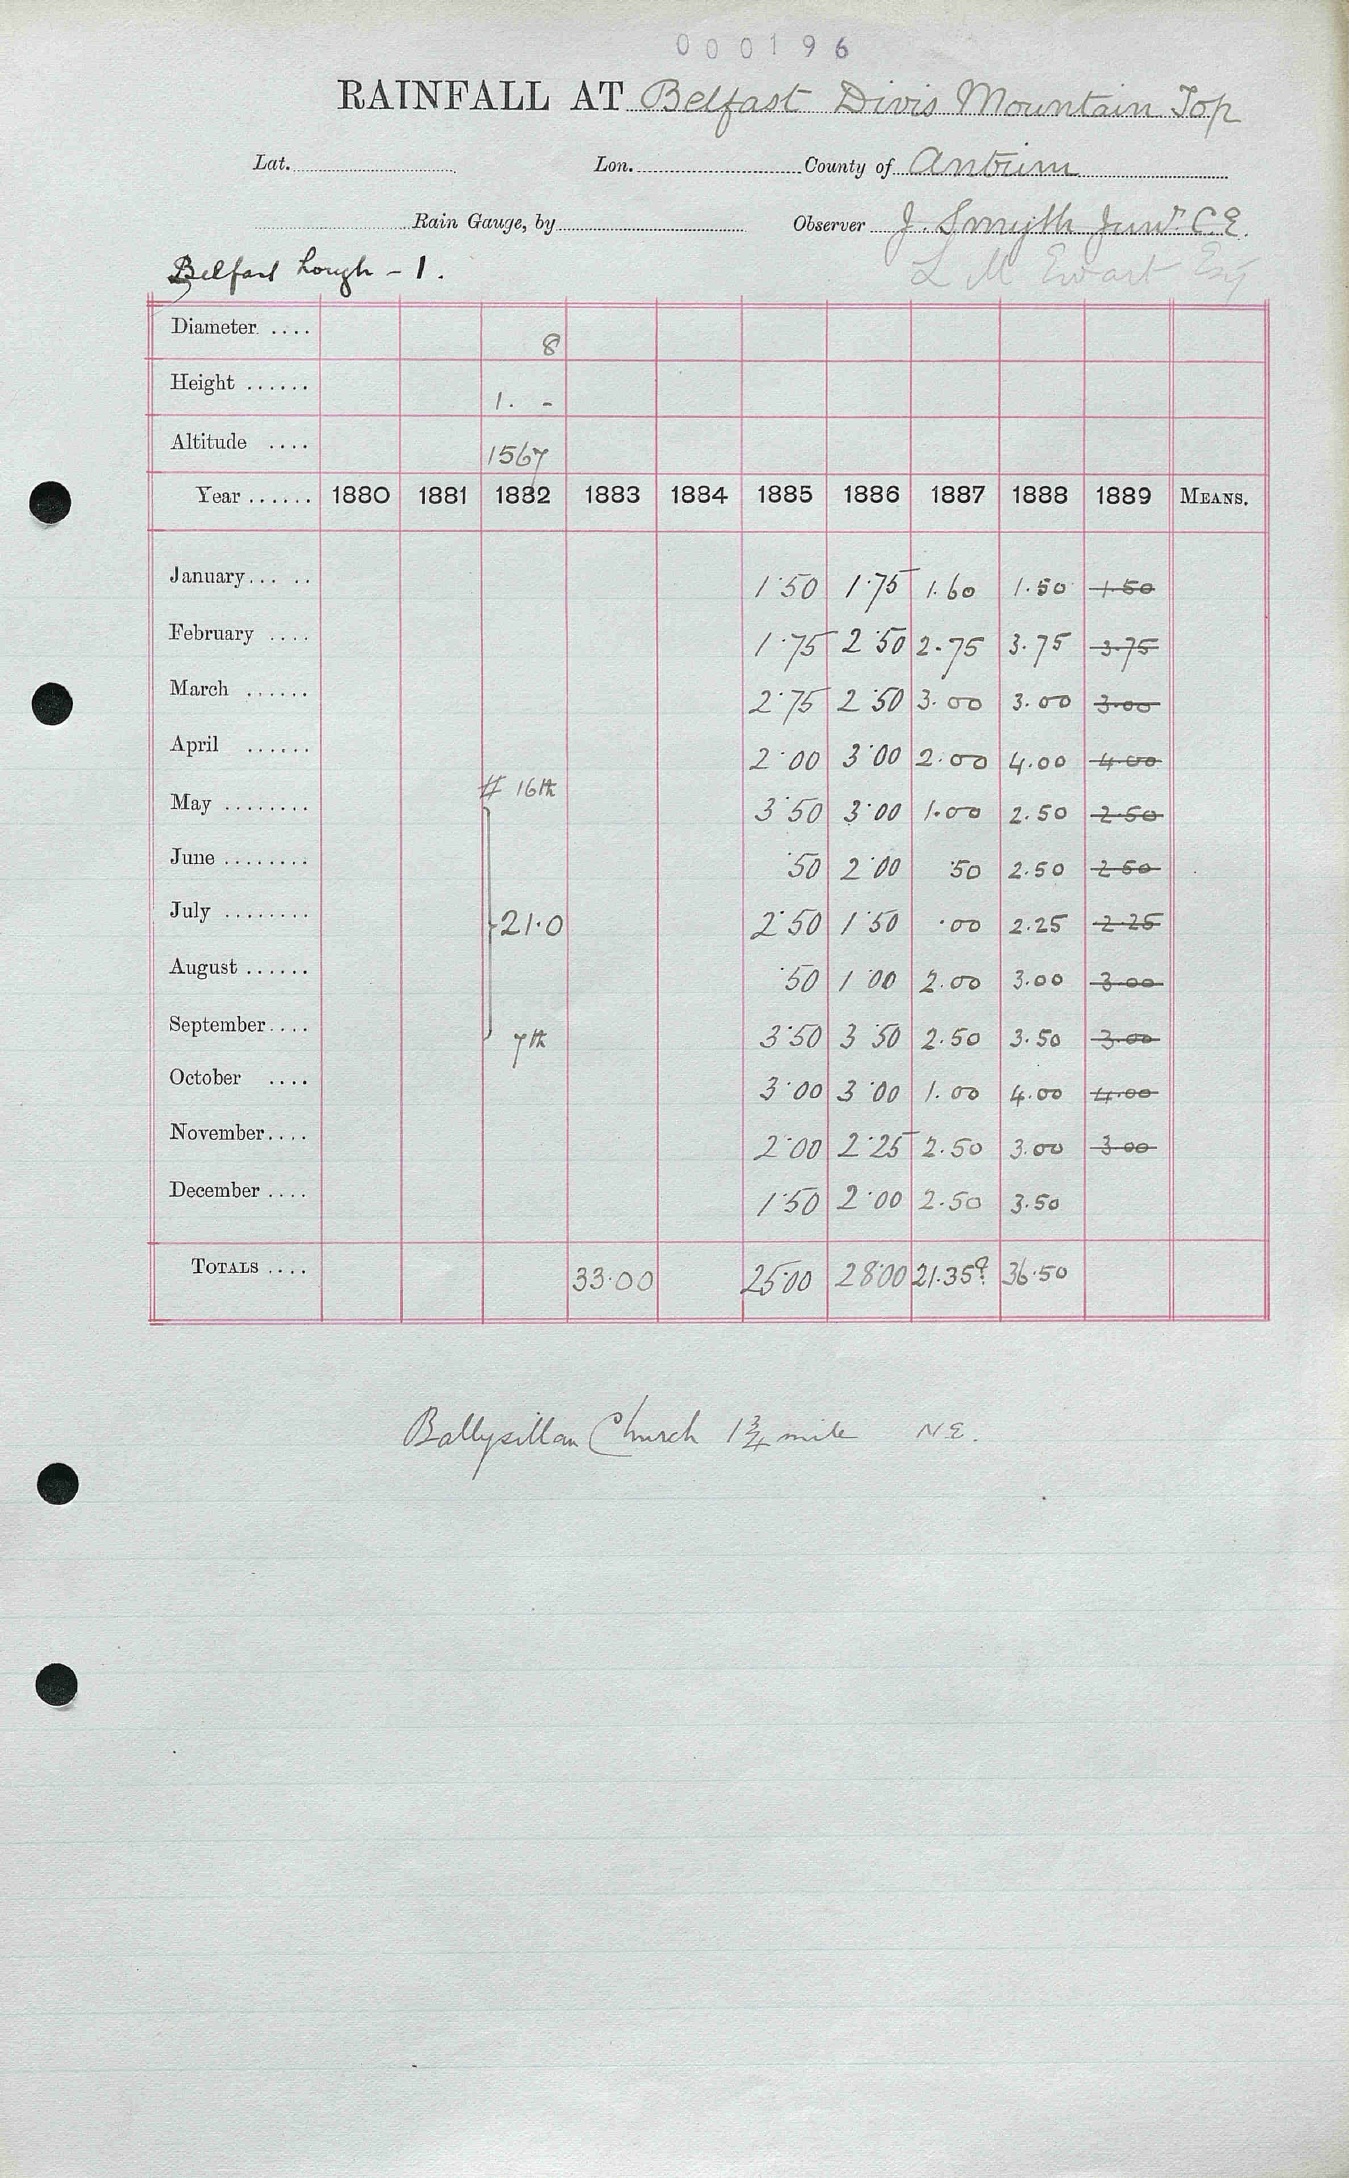 000196
RAINFALL AT Belfast Divis Mountain Top
Lat. Lon. County of Antrim
Rain Gauge, by Observer J. Smyth Junr. C.E.
Belfast Lough - 1. L M Ewart Esq
Diameter .... 8
Height ...... 1. -
Altitude .... 1567
Year ...... 1880 1881 1882 1883 1884 1885 1886 1887 1888 1889 MEANS.
January... .. 1.50 1.75 1.60 1.50 1.50
February .... 1.75 2.50 2.75 3.75 3.75
March ...... 2.75 2.50 3.00 3.00 3.00
April ...... 2.00 3.00 2.00 4.00 4.00
May ........ # 16th 3.50 3.00 1.00 2.50 2.50
June ........ .50 2.00 .50 2.50 2.50
July ........ 21.0 2.50 1.50 .00 2.25 2.25
August ...... .50 1.00 2.00 3.00 3.00
September.... 7th 3.50 3.50 2.50 3.50 3.00
October .... 3.00 3.00 1.00 4.00 4.00
November.... 2.00 2.25 2.50 3.00 3.00
December .... 1.50 2.00 2.50 3.50
TOTALS .... 33.00 25.00 28.00 21.35? 36.50
Ballysillan Church 1 3/4 mile N.E.